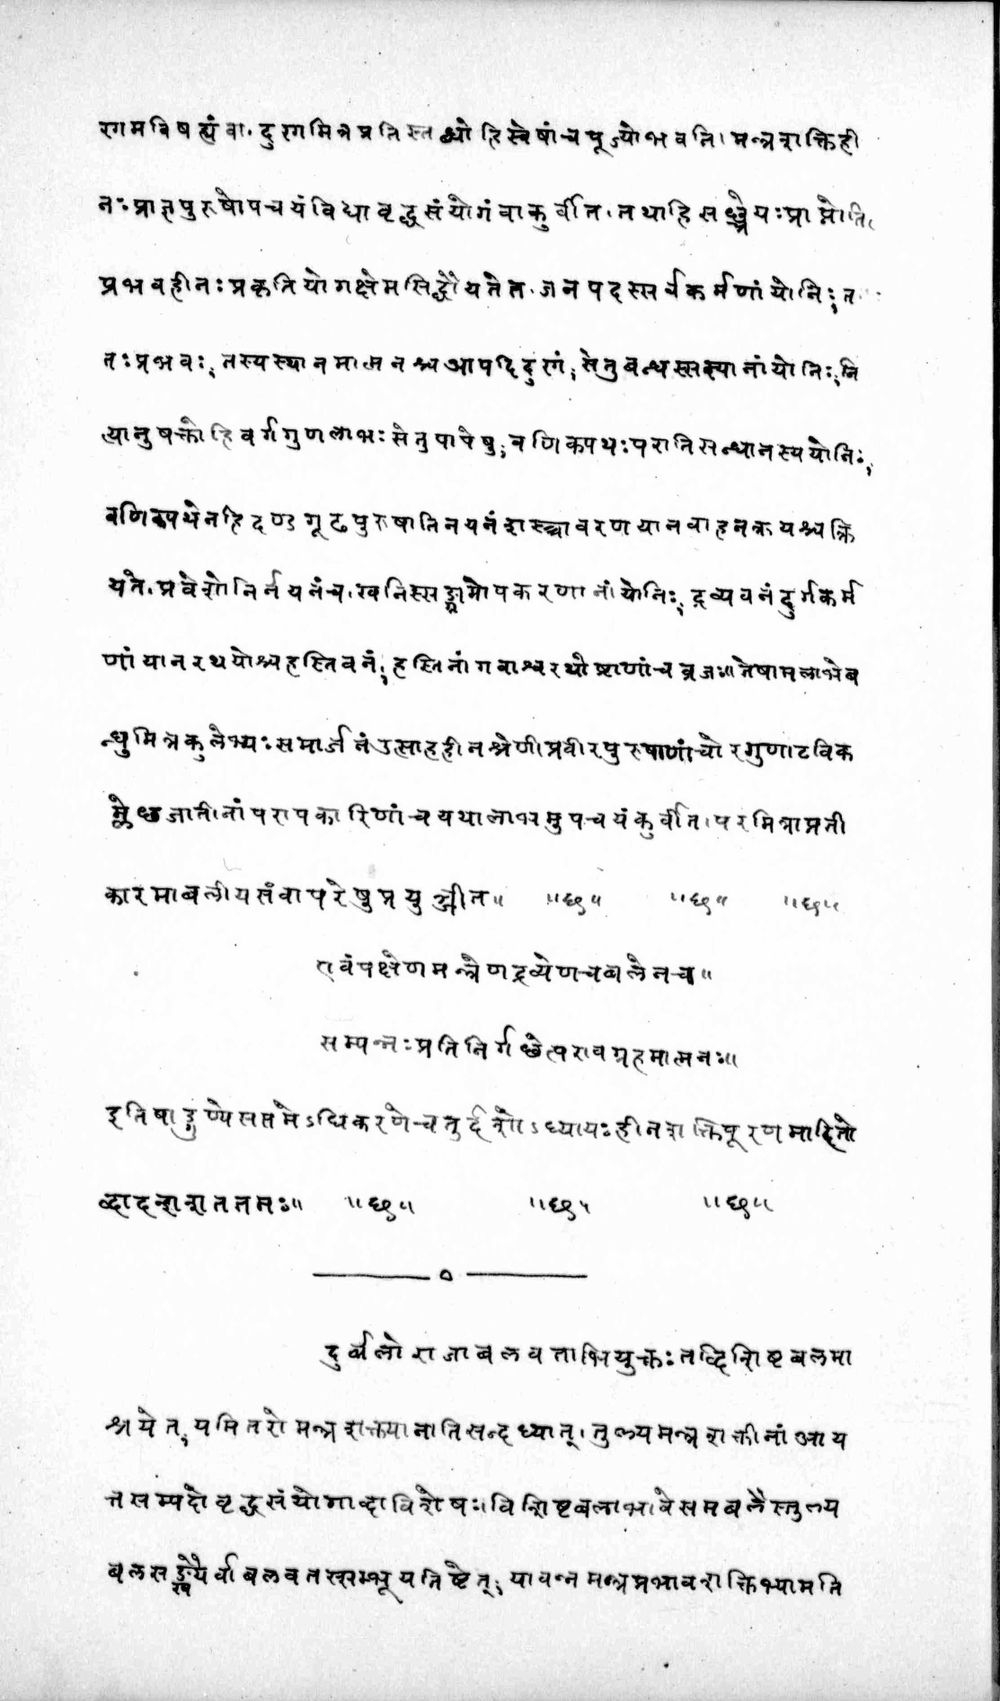 रगमविषह्यं वा. दुरगमित्रप्रतिस्तब्धो हि स्वेषां च पूज्यो भवति। मन्त्रशक्तिही
नः प्राज्ञपुरुषोपचयं विधावृद्धसंयोगं वा कुर्वीत. तथाहि सश्श्रेयः प्राप्नोति।
प्रभवहीनः प्रकृतियोगक्षेमसिद्धौ यतेत. जनपदस्सर्वकर्मणां योनिः; त
तः प्रभवः, तस्य स्थानमात्मनश्च आपदि दुरगं; सेतुबन्धस्सस्यानां योनिः, नि
त्यानुषक्तो हि वर्षगुणलाभः सेतुपापेषु; वणिक्पथः परातिसन्धानस्य योनिः,
वणिक्पथेन हि दण्डगूढपुरुषातिनयनं शस्त्रावरणयानवाहनक्रयश्च क्रि
यते. प्रवेशो निर्नयनं च. खनिस्सङ्ग्रामोपकरणानां योनिः, द्रव्यवनं दुर्गकर्म
णां यानरथयोश्च हस्तिवनं; हस्तिनां गवाश्वरथोष्ट्राणां च व्रजः॥ तेषामलाभे ब
न्धुमित्रकुलेभ्यः समार्जनं उत्साहहीनश्रेणीप्रवीरपुरुषाणां चोरगुणाटविक
म्लेछजातीनां परापकारिणां च यथालाभमुपचयं कुर्वीत। परमित्राप्रती
कारमाबलीयसं वा परेषु प्रयुञ्जीत॥ ॥छ॥ ॥छ॥ ॥छ॥
एवं पक्षेण मन्त्रेण द्रव्येण च बलेन च॥
सम्पन्नः प्रतिनिर्गछेत्परावग्रहमात्मनः॥
इति षाड्गुण्ये सप्तमेऽधिकरणे चतुर्दशोऽध्यायः हीनशक्तिपूरणमादितो
द्वादशशततमः॥ ॥छ॥ ॥छ॥ ॥छ॥
दुर्बलो राजा बलवताभियुक्तः तद्विशिष्टबलमा
श्रयेत, यमितरो मन्त्रशक्तया नातिसन्दध्यात्। तुल्यमन्त्रशक्तीनां आय
त्तसम्पदो वृद्धसंयोगाद्वा विशेषः। विशिष्टबलाभावे समबलैस्तुल्य
बलसङ्ख्यैर्वा बलवतस्सम्भूय तिष्टेत्; यावन्न मन्त्रप्रभावशक्तिभ्यामति